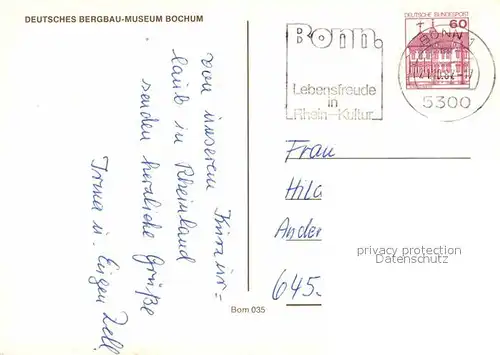 DEUTSCHES BERGBAU-MUSEUM BOCHUM
von unserem Kurzur=
laub in Rheinland
senden herzliche Grüße
Irma u. Eugen Zell
Bom 035
Bonn.
Lebensfreude
in
Rhein-Kultur
DEUTSCHE BUNDESPOST
60
BONN
5300
Frau
Hil
Ander
645
privacy protection
Datenschutz